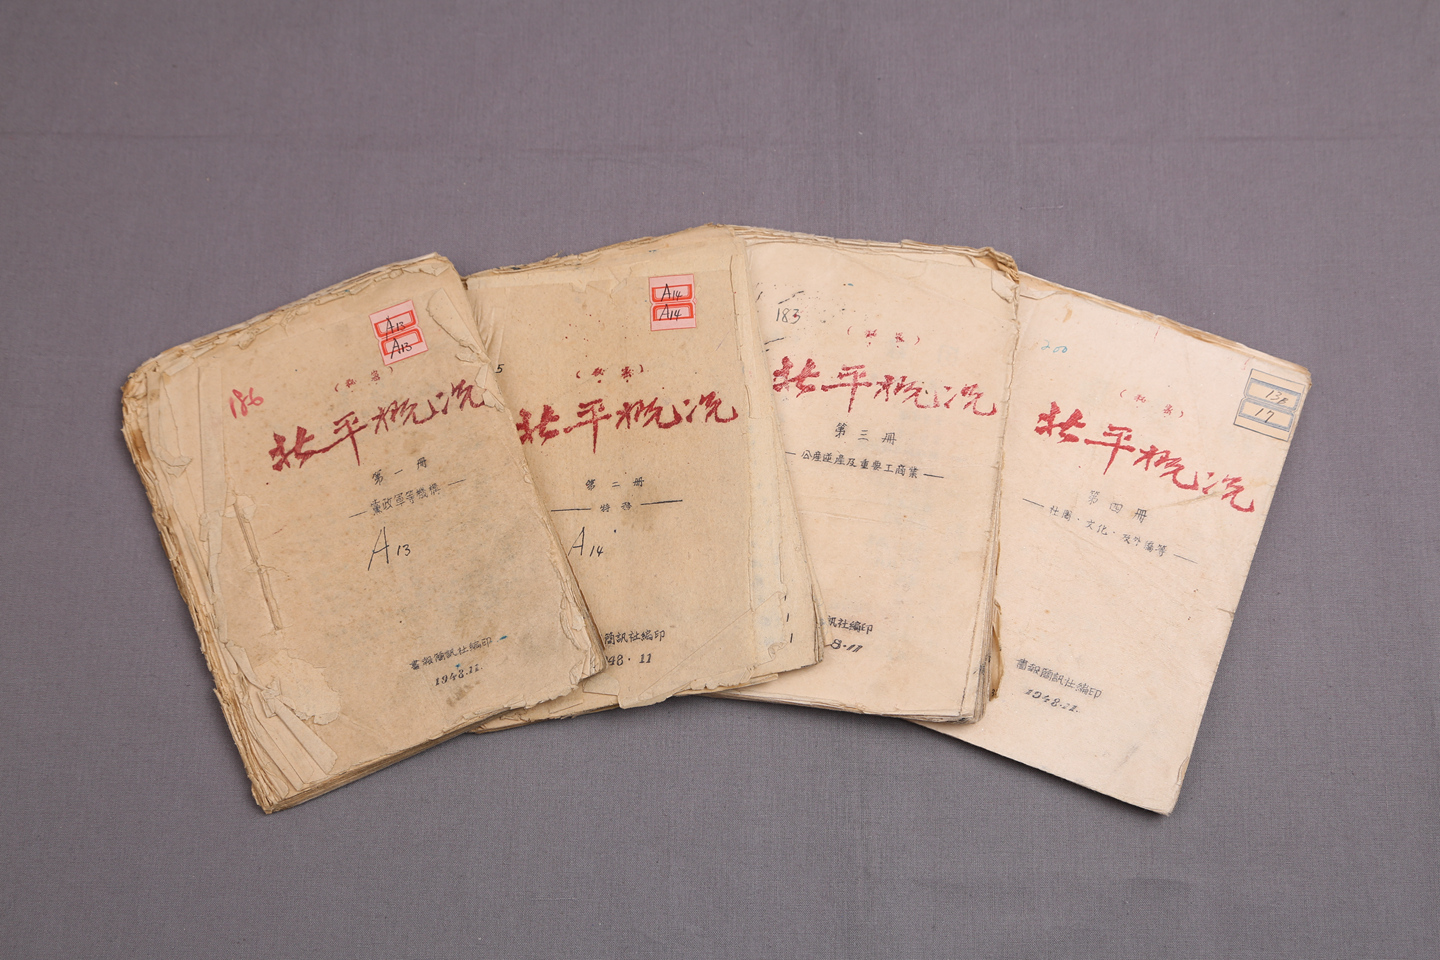 A13
A13
186
(秘密)
北平概況
第一册
—黨政軍等機構—
A13
書報簡訊社編印
1948.11.
A14
A14
5
(秘密)
北平概況
第二册
—特務—
A14
簡訊社編印
948.11
183
(秘密)
北平概況
第三册
—公產逆產及重要工商業—
訊社編印
8.11
200
(秘密)
13A
17
北平概況
第四册
—社團·文化·及外僑等—
書報簡訊社編印
1948.11.